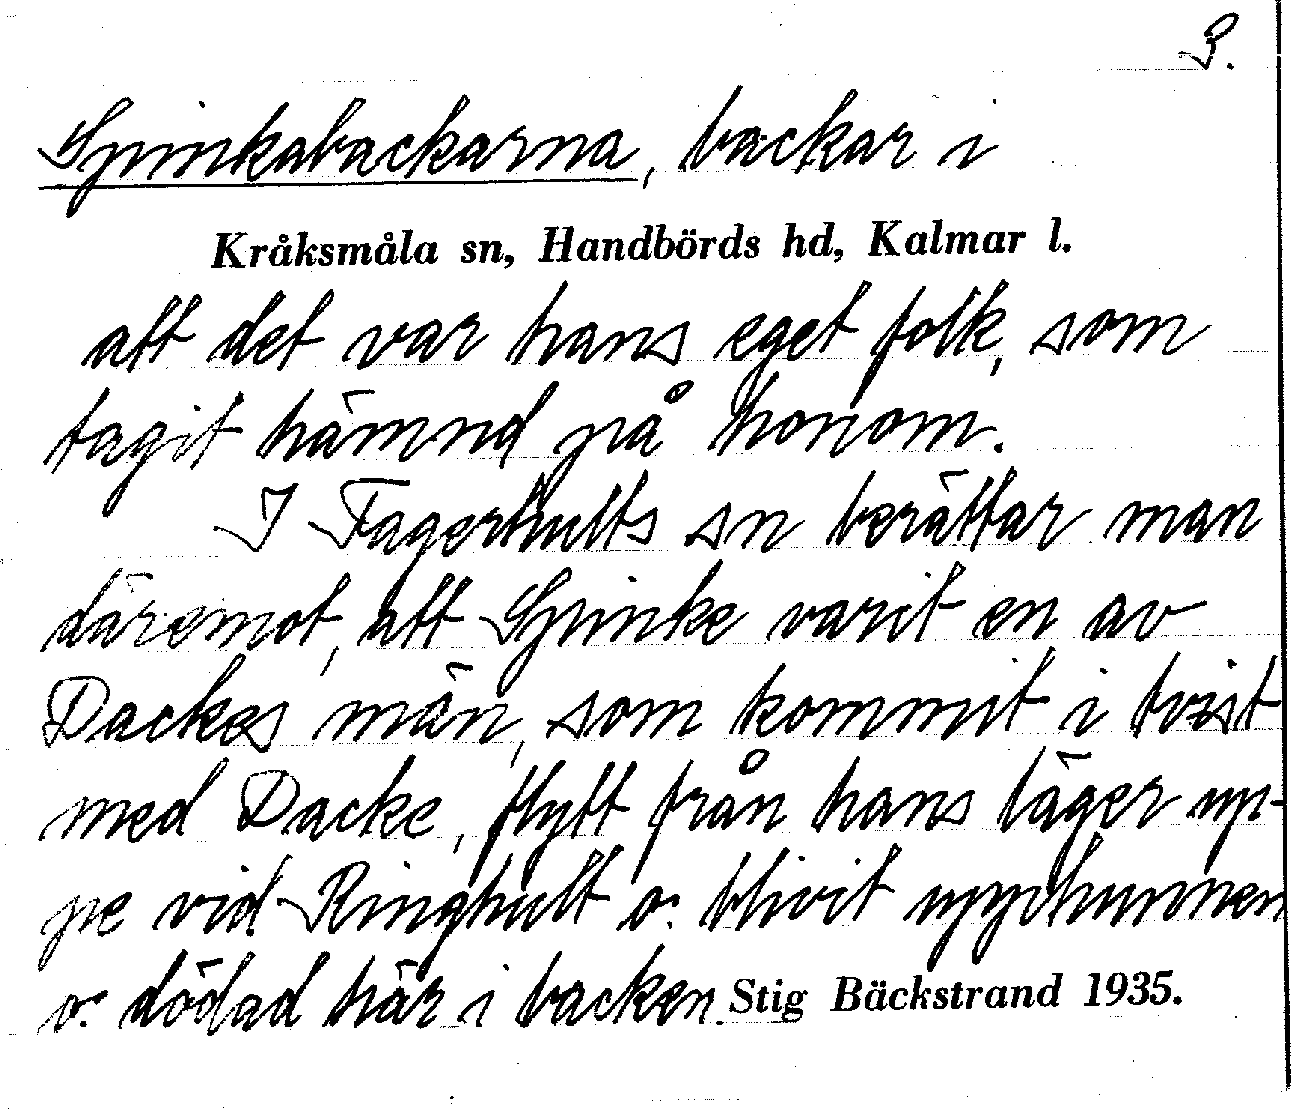 3.
Spinkabackarna, backar i
Kråksmåla sn, Handbörds hd, Kalmar l.
att det var hans eget folk, som
tagit hämnd på honom.
I Fagerhults sn berättar man
däremot, att Spinke varit en av
Dackes män, som kommit i tvist
med Dacke, flytt från hans läger up-
pe vid Ringhult o. blivit upphunnen
o. dödad här i backen.
Stig Bäckstrand 1935.